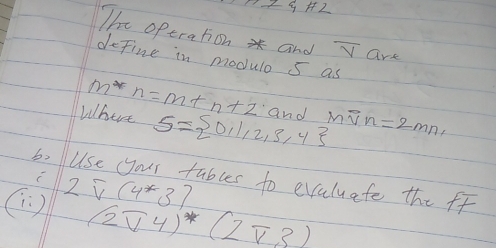 The operation * and ⊽ are
define in modulo 5 as
m * n = m + n + 2 and m ⊽ n = 2mn,
Where S = {0, 1, 2, 3, 4}
b. Use your tables to evaluate the ff
i 2 ⊽ (4 * 3)
(ii) (2 ⊽ 4) * (2 ⊽ 3)